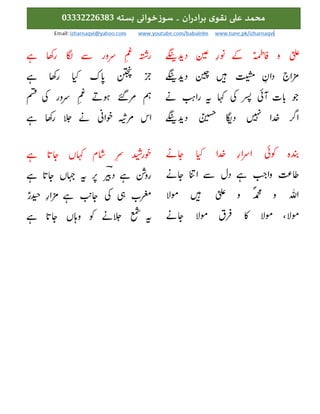 محمد علی نقوی برادران ۔ سوزخوانی بستہ 03332226383
Email: izharnaqvi@yahoo.com www.youtube.com/babulmlm www.tune.pk/izharnaqvi
علیؑ و فاطمہؑ کے نورِ عین دیدیگے
مزاج دانِ مشیت ہیں چین دیدیگے
جو بات آئی پسر کی کہا یہ راہب نے
اگر خدا نہیں دیگا حسینؑ دیدیگے
رشتہ غمِ سرور سے لگا رکھا ہے
جز پنجتنِ پاک کیا رکھا ہے
ہم مرگئے ہوتے غمِ سرور کی قسم
اس مرثیہ خوانی نے جلا رکھا ہے
بندہ کوئی اسرارِ خدا کیا جانے
طاعت واجب ہے دل سے اتنا جانے
اللہ و محمدؐ و علیؑ ہیں مولا
مولا، مولا کا فرق مولا جانے
خورشید سرِ شام کہاں جاتا ہے
روشن ہے دبیر پر یہ جہاں جاتا ہے
مغرب ہی کی جانب ہے مزارِ حیدرؑ
یہ شمع جلانے کو وہاں جاتا ہے